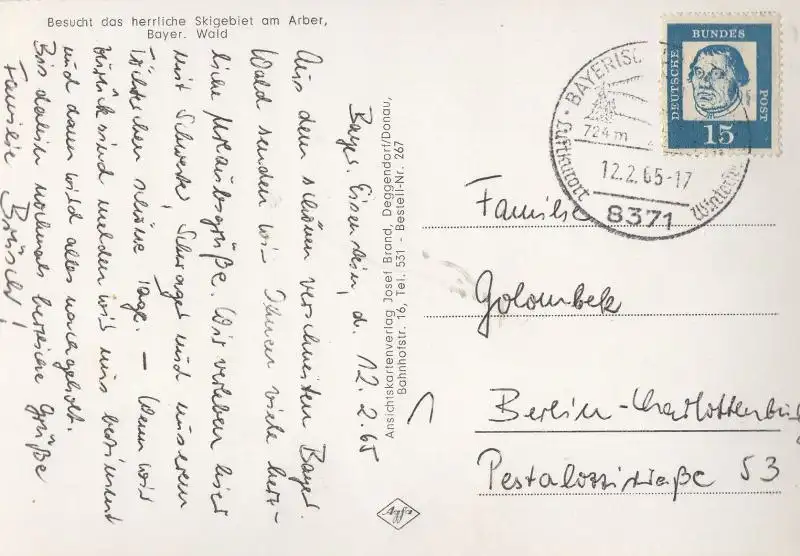 Besucht das herrliche Skigebiet am Arber,
Bayer. Wald
Bayr. Eisenstein, d. 12.2.65
Aus dem schönen verschneiten Bayr.
Wald senden wir Ihnen viele herz-
liche Urlaubsgrüße. Wir verleben hier
mit Schwester, Schwager und unserem
Töchterchen schöne Tage. – Wenn wir
zurück sind melden wir uns bestimmt
und dann wird alles nachgeholt.
Bis dahin nochmals herzliche Grüße
Familie
Ansichtskartenverlag Josef Brand, Deggendorf/Donau,
Bahnhofstr. 16, Tel. 531 - Bestell-Nr. 267
Agfa
DEUTSCHE BUNDES POST
15
BAYERISCH
724 m
12.2.65-17
Luftkurort
8371
Familie
Golombek
Berlin-Charlottenburg
Pestalozzistraße 53